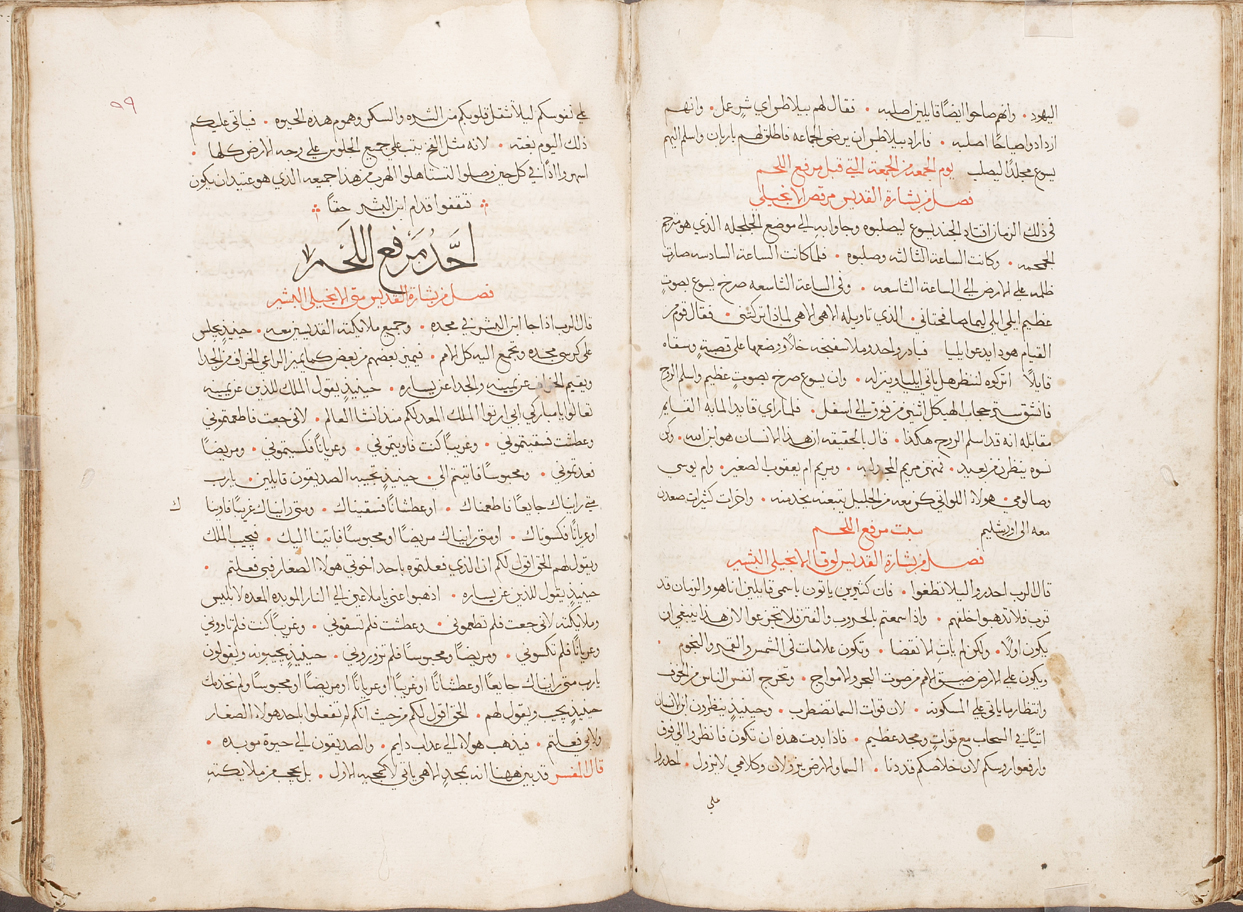 اليهود • وانهم صاحوا ايضًا قايلين اصلبه • فقال لهم بيلاطس واي شرٍ عمل • وانهم
ازدادوا صياحًا اصلبه • فاراد بيلاطس ان يرضى الجماعه فاطلق لهم باربان واسلم اليهم
يسوع مجلدًا ليصلب يوم الجمعه من الجمعة التي قبل مرفع اللحم
فصل من بشارة القديس مرقص الانجيلي
في ذلك الزمان اقتاد الجند يسوع ليصلبوه وجاوا به الى موضع الجلجله الذي هو مترجم
الجمجمه • وكانت الساعة الثالثه وصلبوه • فلما كانت الساعة السادسه صارت
ظلمه على الارض الى الساعة التاسعه • وفي الساعة التاسعه صرخ يسوع بصوتٍ
عظيم ايلي ايلي ليما صافختاني • الذي تاويله الاهي الاهي لماذا تركتني • فقال قوم من
القيام هوذا يدعوا ايليا • فبادر واحد وملا سفنجه خلًا ووضعها على قصبةٍ وسقاه
قايلًا اتركوه لننظر هل ياتي ايليا ينزله • وان يسوع صرخ بصوتٍ عظيم واسلم الروح
فانشق ستر حجاب الهيكل اثنين من فوق الى اسفل • فلما راى قايد المايه القايم
مقابله انه قد اسلم الروح هكذا • قال بالحقيقه ان هذا الانسان هو ابن الله • وكن
نسوه ينظرن من بعيد • منهن مريم المجدليه • ومريم ام يعقوب الصغير • وام يوسي
وصالومي • هولاء اللواتي كن معه من الجليل يتبعنه يخدمنه • واخرات كثيرات صعدن
معه الى اورشليم سبت مرفع اللحم
فصل من بشارة القديس لوقا الانجيلي البشير
قال الرب احذروا ليلا تطغوا • فان كثيرين ياتون باسمي قايلين انا هو والزمان قد
قرب فلا تذهبوا خلفهم • واذا سمعتم بالحروب والفتن فلا تجزعوا لان هذا ينبغي ان
يكون اولًا • ولكن لم يات الانقضا • وتكون علامات في الشمس والقمر والنجوم •
ويكون على الارض ضيق الامم من صوت البحر والامواج • وتخرج انفس الناس من الخوف
وانتظار ما ياتي على المسكونه • لان قوات السما تضطرب • وحينيذٍ ينظرون ابن الانسان
اتيًا في السحاب مع قوات ومجد عظيم • فاذا بدت هذه ان تكون فانظروا الى فوق
وارفعوا روسكم لان خلاصكم قد دنا • السما والارض يزولان وكلامي لا يزول • احذروا
على
٩٩
على نفوسكم ليلا تثقل قلوبكم من الشره والسكر وهموم هذه الحيوه • فياتي عليكم
ذلك اليوم بغته • لانه مثل الفخ يثب على جميع الجلوس على وجه الارض كلها •
اسهروا اذًا في كل حين وصلوا لتستاهلوا الهرب من هذا جميعه الذي هو عتيد ان يكون
وتقفوا قدام ابن البشر حقًا
احَد مَرفع اللحَم
فصل من بشارة القديس متى الانجيلي البشير
قال الرب اذا جا ابن البشر في مجده • وجميع ملايكته القديسين معه • حينيذٍ يجلس
على كرسي مجده وتجمع اليه كل الامم • فيميز بعضهم من بعض كما يميز الراعي الخراف من الجدا
ويقيم الخراف عن يمينه والجدا عن يساره • حينيذٍ يقول الملك للذين عن يمينه
تعالوا يا مباركي ابي ارثوا الملك المعد لكم منذ انشا العالم • لاني جعت فاطعمتموني
وعطشت فسقيتموني • وغريبًا كنت فاويتموني • وعريانًا فكسيتموني • ومريضًا
فعدتموني • ومحبوسًا فاتيتم الي • حينيذٍ تجيبه الصديقون قايلين • يا رب
متى رايناك جايعًا فاطعمناك • او عطشانًا فسقيناك • ومتى رايناك غريبًا فاوينا
ك
او عريانًا فكسوناك • او متى رايناك مريضًا او محبوسًا فاتينا اليك • فيجيب الملك
ويقول لهم الحق اقول لكم ان الذي فعلتموه باحد اخوتي هولا الصغار فبي فعلتم •
حينيذٍ يقول للذين عن يساره • اذهبوا عني يا ملاعين الى النار الموبده المعده لابليس
وملايكته لاني جعت فلم تطعموني • وعطشت فلم تسقوني • وغريبًا كنت فلم تاووني
وعريانًا فلم تكسوني • ومريضًا ومحبوسًا فلم تزوروني • حينيذٍ يجيبونه ويقولون
يا رب متى رايناك جايعًا او عطشانًا او غريبًا او عريانًا او مريضًا او محبوسًا ولم نخدمك
حينيذٍ يجيب ويقول لهم • الحق اقول لكم من حيث انكم لم تفعلوا باحد هولا الصغار
ولا بي فعلتم • فيذهب هولا الى عذاب دايم • والصديقون الى حيوة موبده •
قال المفسر قد بين ههنا انه بمجدٍ الاهي ياتي لا كمجيه الاول • بل يجي مع ملايكته